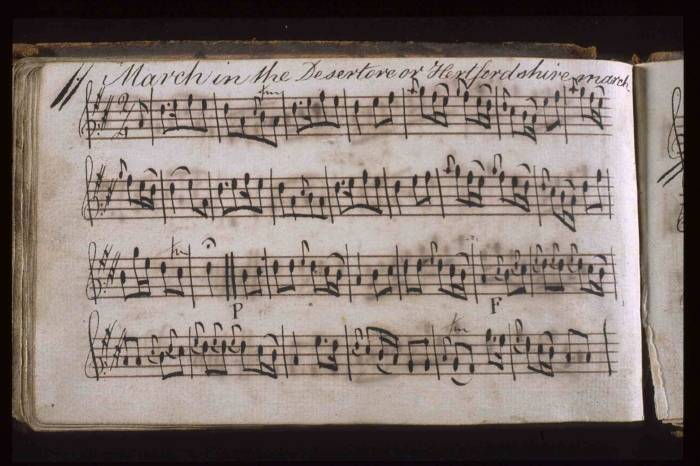 11 March in the Desertore or Hertfordshire march
tm
2
4
tm
P
F
tm